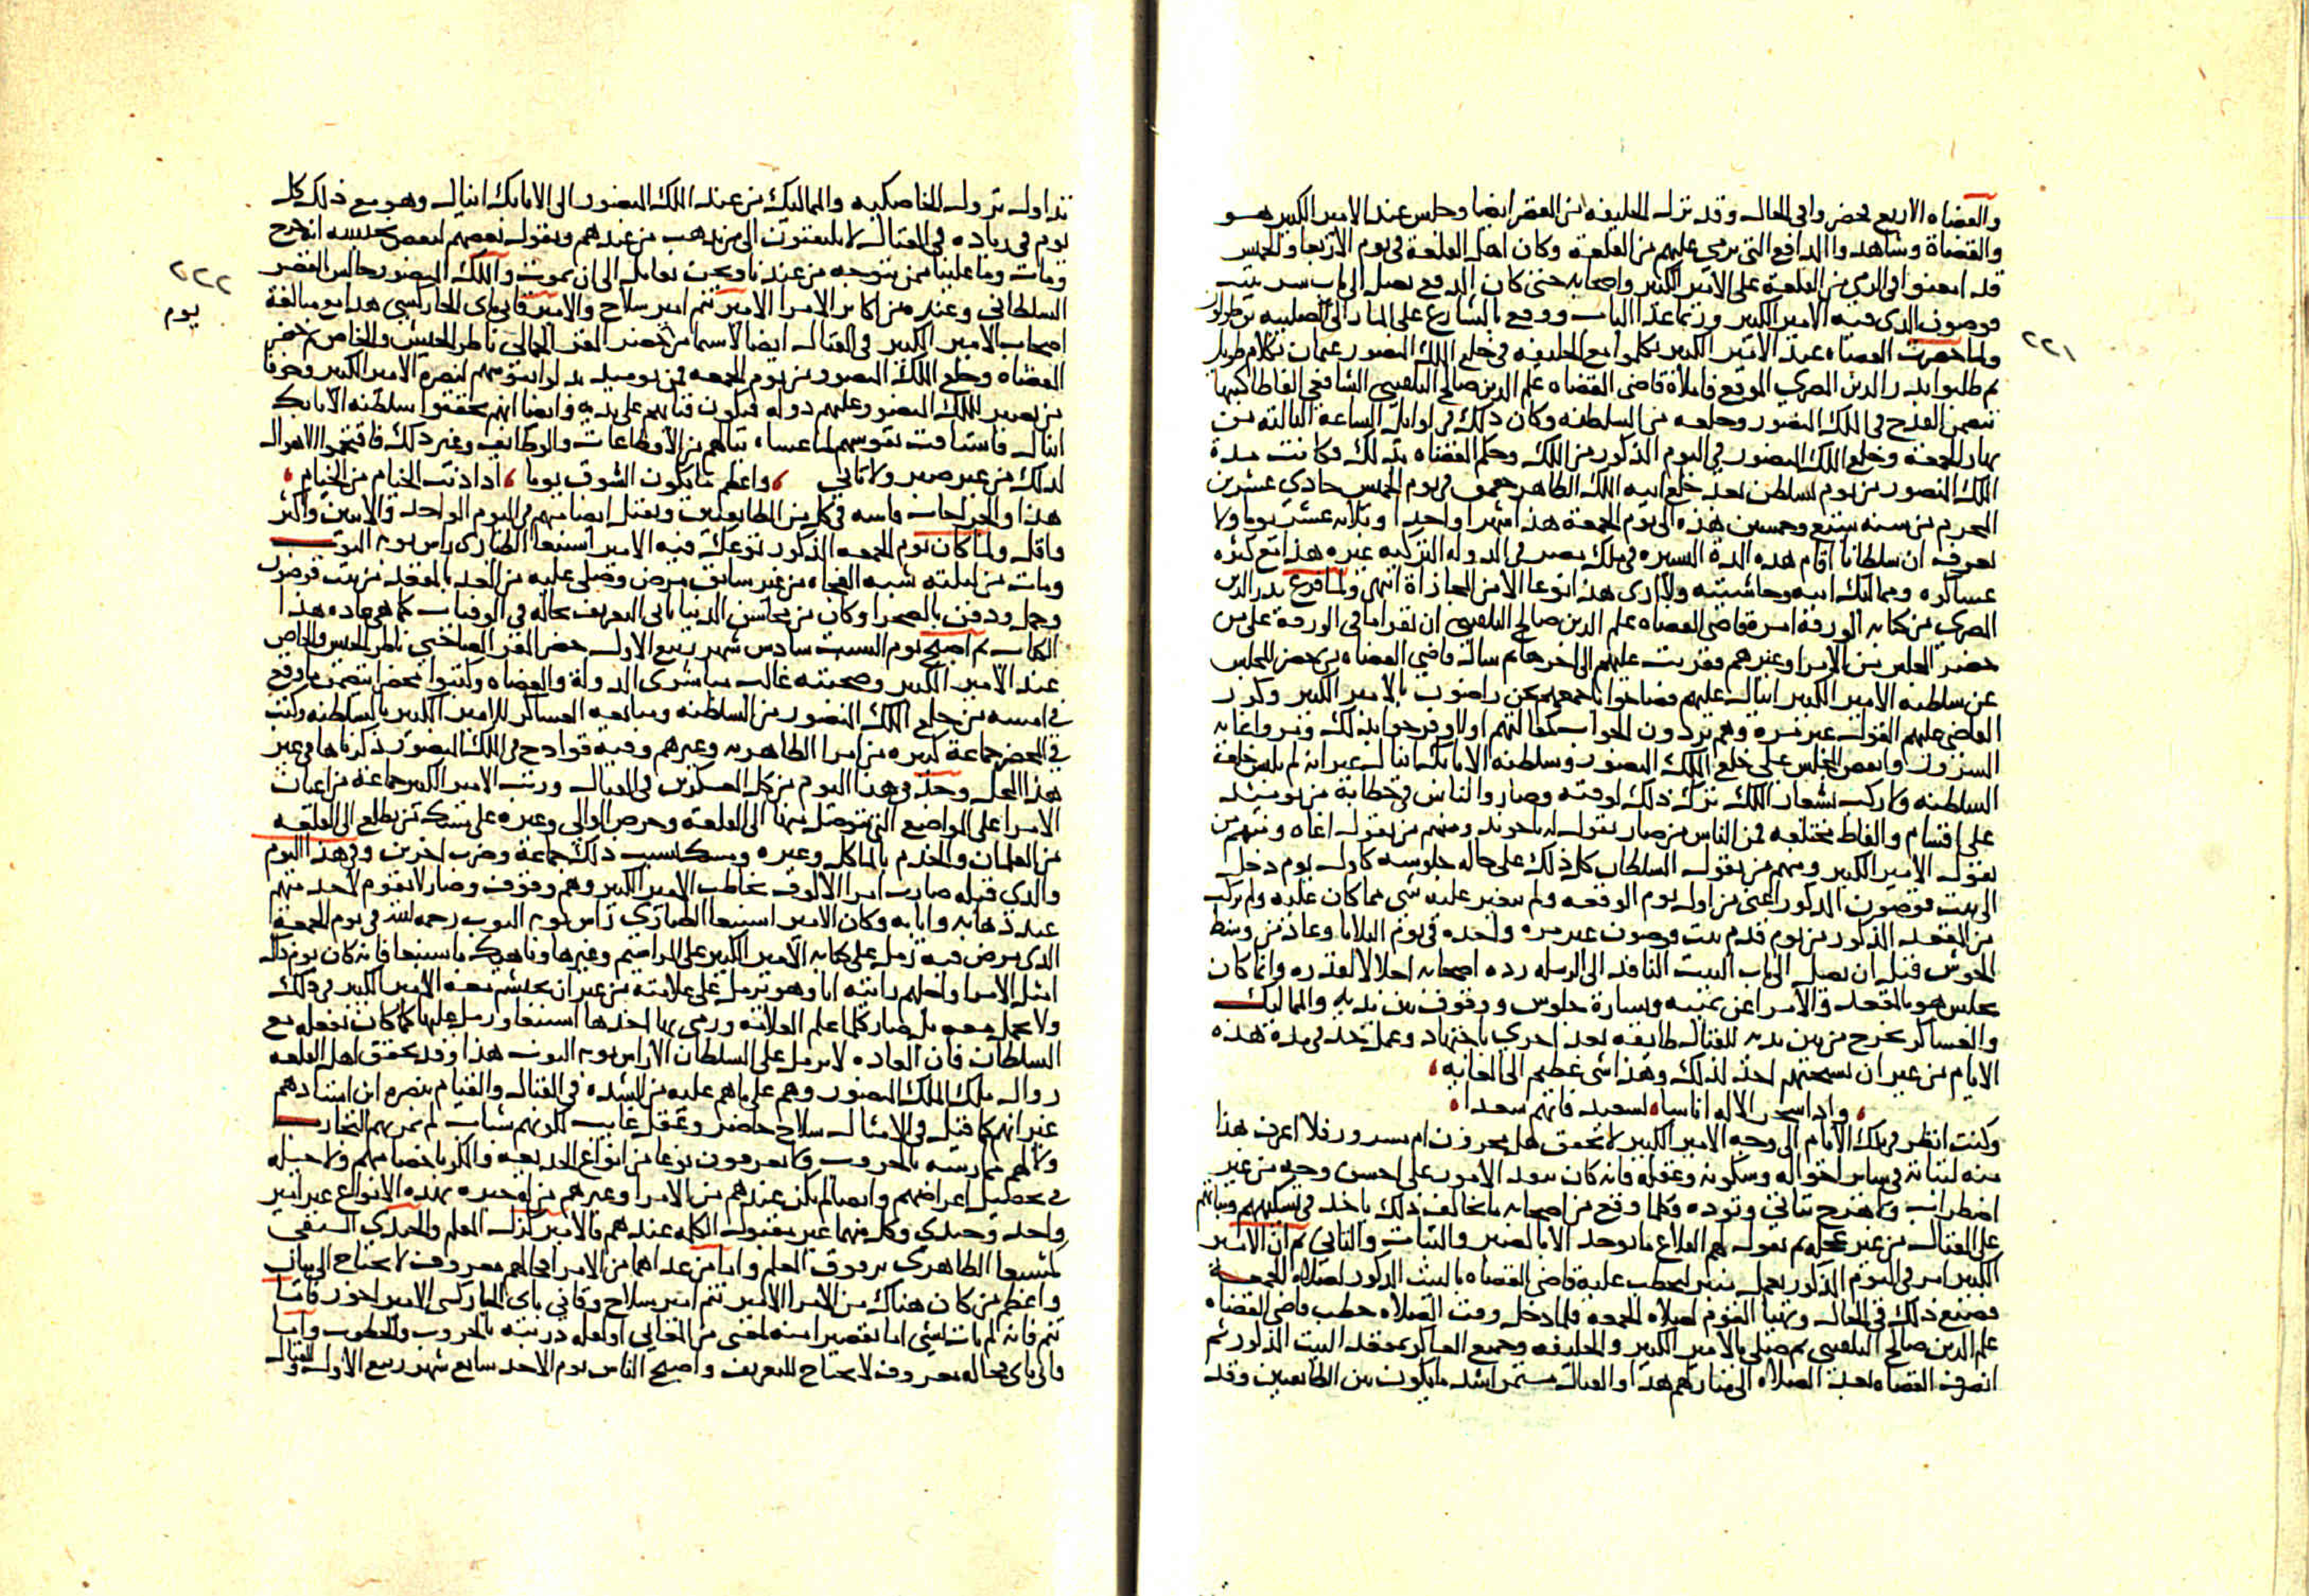 ٢٢١
والقضاة الاربع فحضروا في الحال وقد نزل الخليفة من القصر ايضا وجلس عند الامير الكبير هو
والقضاة وشاهدوا المدافع التي يرمى عليهم من القلعة وكان اهل القلعة في يوم الاربعا والخميس
قد امعنوا في الرمي من القلعة على الامير الكبير واصحابه حتى كان المدفع يصل الى باب سر بيت
قوصون الذي فيه الامير الكبير وربما عدا الباب ووقع بالشارع على المار الى الصليبة
ولما حضرت القضاة عند الامير الكبير تكلموا مع الخليفة في خلع الملك المنصور عثمان بكلام طويل
ثم طلبوا بدر الدين المصري الموقع فاملاه قاضي القضاه علم الدين صالح البلقيني الشافعي الفاظا كتبها
تتضمن القدح في الملك المنصور وخلعه من السلطنه وكان ذلك في اوايل الساعة الثالثه من
نهار الجمعة وخلع الملك المنصور في اليوم المذكور من الملك وحكم القضاه بذلك فكانت مدة
الملك المنصور من يوم تسلطن بعد خلع ابيه الملك الظاهر جقمق في يوم الخميس حادي عشرين
المحرم من سنه سبع وخمسين هذه الى يوم الجمعة هذا شهرا واحدا وثلاثه عشر يوما ولا
نعرف ان سلطانا اقام هذه المدة اليسيره في ملك مصر في الدوله التركيه غيره هذا مع كثره
عساكره ومماليك ابيه وحاشيته ولا ارى هذا نوعا الا من المجازاة انتهى ولما فرغ بدر الدين
المصري من كتابه الورقة امره قاضي القضاه علم الدين صالح البلقيني ان يقرا ما في الورقة على من
حضر المجلس من الامرا وغيرهم فقريت عليهم الى اخرها ثم سال قاضي القضاه من حضر المجلس
عن سلطنه الامير الكبير اينال عليهم فصاحوا باجمعهم نحن راضون بالامير الكبير وكرر
القاضي عليهم القول غير مره وهم يردون الجواب كمقالتهم اولا وفرحوا بذلك وسروا غايه
السرور وانفض المجلس على خلع الملك المنصور وسلطنه الاتابك اينال غير انه لم يلبس خلعة
السلطنه ولا ركب بشعار الملك ترك ذلك لوقته وصاروا الناس في خطابه من يوميذ
على اقسام والفاظ مختلفه فمن الناس من صار يقول له ياخوند ومنهم من يقول اغاه ومنهم من
يقول الامير الكبير ومنهم من يقول السلطان كل ذلك على حاله جلوسه كاول يوم دخل
الى بيت قوصون المذكور اعني من اول يوم الوقعه ولم يتغير عليه شي مما كان عليه ولم يركب
من المقعد المذكور من يوم قدم بيت قوصون غير مره واحده في يوم الثلاثا وعاد من وسط
الحوش قبل ان يصل الى باب البيت النافذ الى الرمله رده اصحابه اجلالا لقدره وانما كان
يجلس هو بالمقعد والامرا عن يمينه ويساره جلوس ووقوف بين يديه والمماليك
والعساكر تخرج من بين يديه للقتال طايفه بعد اخري باجتهاد وعمل جد في مده هذه
الايام من غير ان يسخرهم احد لذلك وهذا شي عظيم الى الغايه
واذا سخر الاله اناسا لسعيد فانهم سعدا
وكنت انظر في تلك الايام الى وجه الامير الكبير لاتحقق هل محزون ام مسرور فلا اعرف هذا
منه لثباته في ساير احواله وسكونه وعقله فانه كان ينفد الامور على احسن وجه من غير
اضطراب ولا هرج بتاني وتوده وكلما وقع من اصحابه ما يخالف ذلك ياخذ في تسكينهم وثباتهم
على القتال من غير عجله ثم يقول لهم القلاع ما توخذ الا بالصبر والثبات والتاني ثم ان الامير
الكبير امر في اليوم المذكور بعمل منبر ليخطب عليه قاضي القضاه بالبيت المذكور لصلاه الجمعة
فصنع ذلك في الحال وتهيا القوم لصلاه الجمعه فلما دخل وقت الصلاه خطب قاضي القضاه
علم الدين صالح البلقيني ثم صلى بالامير الكبير والخليفه وجميع العساكر بمقعد البيت المذكور ثم
انصرف القضاه بعد الصلاه الى منازلهم هذا والقتال مستمر اشد ما يكون بين الطايفتين وقد
تداول نزول الخاصكيه والمماليك من عند الملك المنصور الى الاتابك اينال وهو مع ذلك كل
يوم في زياده في القتال لا يلتفتون الى من يذهب من عندهم ويقول بعضهم لبعض نحسبه انجرح
ومات وما علينا ممن يتوجه من عندنا ونحن نقاتل الى ان نموت والملك المنصور جالس بالقصر
السلطاني وعنده من اكابر الامرا الامير تنم امير سلاح والامير قاني باي الجاركسي هذا مع مبالغة
اصحاب الامير الكبير في القتال ايضا لا سيما من حضر المقر الجمالي ناظر الجيش والخاص ثم حضر
القضاه وخلع الملك المنصور من يوم الجمعه فمن يوميذ بذلوا نفوسهم لنصره الامير الكبير وخوفا
من تصير الملك المنصور وعليهم دوله فيكون فناهم على يديه وايضا انهم تحققوا سلطنه الاتابك
اينال فاستاقت نفوسهم لما عساه ينالهم من الاقطاعات والوظايف وغير ذلك فاقتحموا الاهوال
لذلك من غير صبر ولا تاني واعظم ما يكون الشوق يوما اذا دنت الخيام من الخيام
هذا والجراحات فاشيه في كل من الطايفتين ويقتل ايضا منهم في اليوم الواحد والاثنين واكثر
واقل ولما كان يوم الجمعه المذكور توعك فيه الامير اسنبغا الطياري راس نوبه النوب
ومات من ليلته شبه الفجاه من غير سابق مرض وصلي عليه من الغد بالمقعد من بيت قوصون
وحمل ودفن بالصحرا وكان من محاسن الدنيا ياتي التعريف بحاله في الوفيات كما هي عاده هذا
الكتاب ثم اصبح يوم السبت سادس شهر ربيع الاول حضر المقر الصاحبي ناظر الجيش والخاص
عند الامير الكبير وصحبته غالب مباشري الدولة والقضاه وكتبوا محضرا يتضمن ما وقع
في امسه من خلع الملك المنصور من السلطنه ومبايعه العساكر للامير الكبير بالسلطنه وكتب
في المحضر جماعة كثيره من امرا الظاهريه وغيرهم وفيه قوادح في الملك المنصور ذكرناها في غير
هذا المحل وجد في هذا اليوم من كل العسكرين في القتال ورتب الامير الكبير جماعة من اعيان
الامرا على المواضع التي يتوصل منها الى القلعة وحرص الوالي وغيره على مسك من يطلع الى القلعه
من الغلمان والخدم بالماكل وغيره ومسك بسبب ذلك جماعة وضرب اخرين وفي هذا اليوم
والذي قبله صارت امرا الالوف تخاطب الامير الكبير وهم وقوف وصار لا يقوم لاحد منهم
عند ذهابه وايابه وكان الامير اسنبغا الطياري راس نوبه النوب رحمه الله في يوم الجمعة
الذي مرض فيه رمل على كتابه الامير الكبير على المراسيم وغيرها وناهيك باسنبغا فانه كان يوم ذلك
امثل الامرا واجلهم رايته انا وهو يرمل على علامته من غير ان يحتشم معه الامير الكبير في ذلك
ولا تجمل معه بل صار كلما علم العلامه ورمى بها اخذها اسنبغا ورمل عليها كما كان يفعل مع
السلطان فان العاده لا يرمل على السلطان الا راس نوبه النوب هذا وقد تحقق اهل القلعه
زوال ملك الملك المنصور وهم على ما هم عليه من الشده في القتال والقيام بنصره ابن استادهم
غير انهم كما قيل في الامثال سلاح حاضر وعقل غايب لكونهم شباب لم تمر بهم التجارب
ولا لهم ممارسه بالحروب ولا يعرفون نوعا من انواع الخديعه والمكر باخصامهم ولا حيله
في تحصيل اغراضهم وايضا لم يكن عندهم من الامرا وغيرهم من له خبره بهذه الانواع غير امير
واحد وجندي وكل منهما غير مقبول الكلمه عندهم فالامير لزل المعلم والجندي السيفي
لمشبغا الظاهري برقوق المعلم واما من عداهما من الامرا فحالهم معروف لا يحتاج الى بيان
واعظم من كان هناك من الامرا الامير تنم امير سلاح وقاني باي الجاركسي الامير اخور فاما
تنم فانه لم يات بشي اما تقصيرا منه لمعنى من المعاني او لقله دربته بالحروب والخطوب واما
قاني باي فحاله معروف لا يحتاج للتعريف واصبح الناس يوم الاحد سابع شهر ربيع الاول والقتال
٢٢٢
يوم